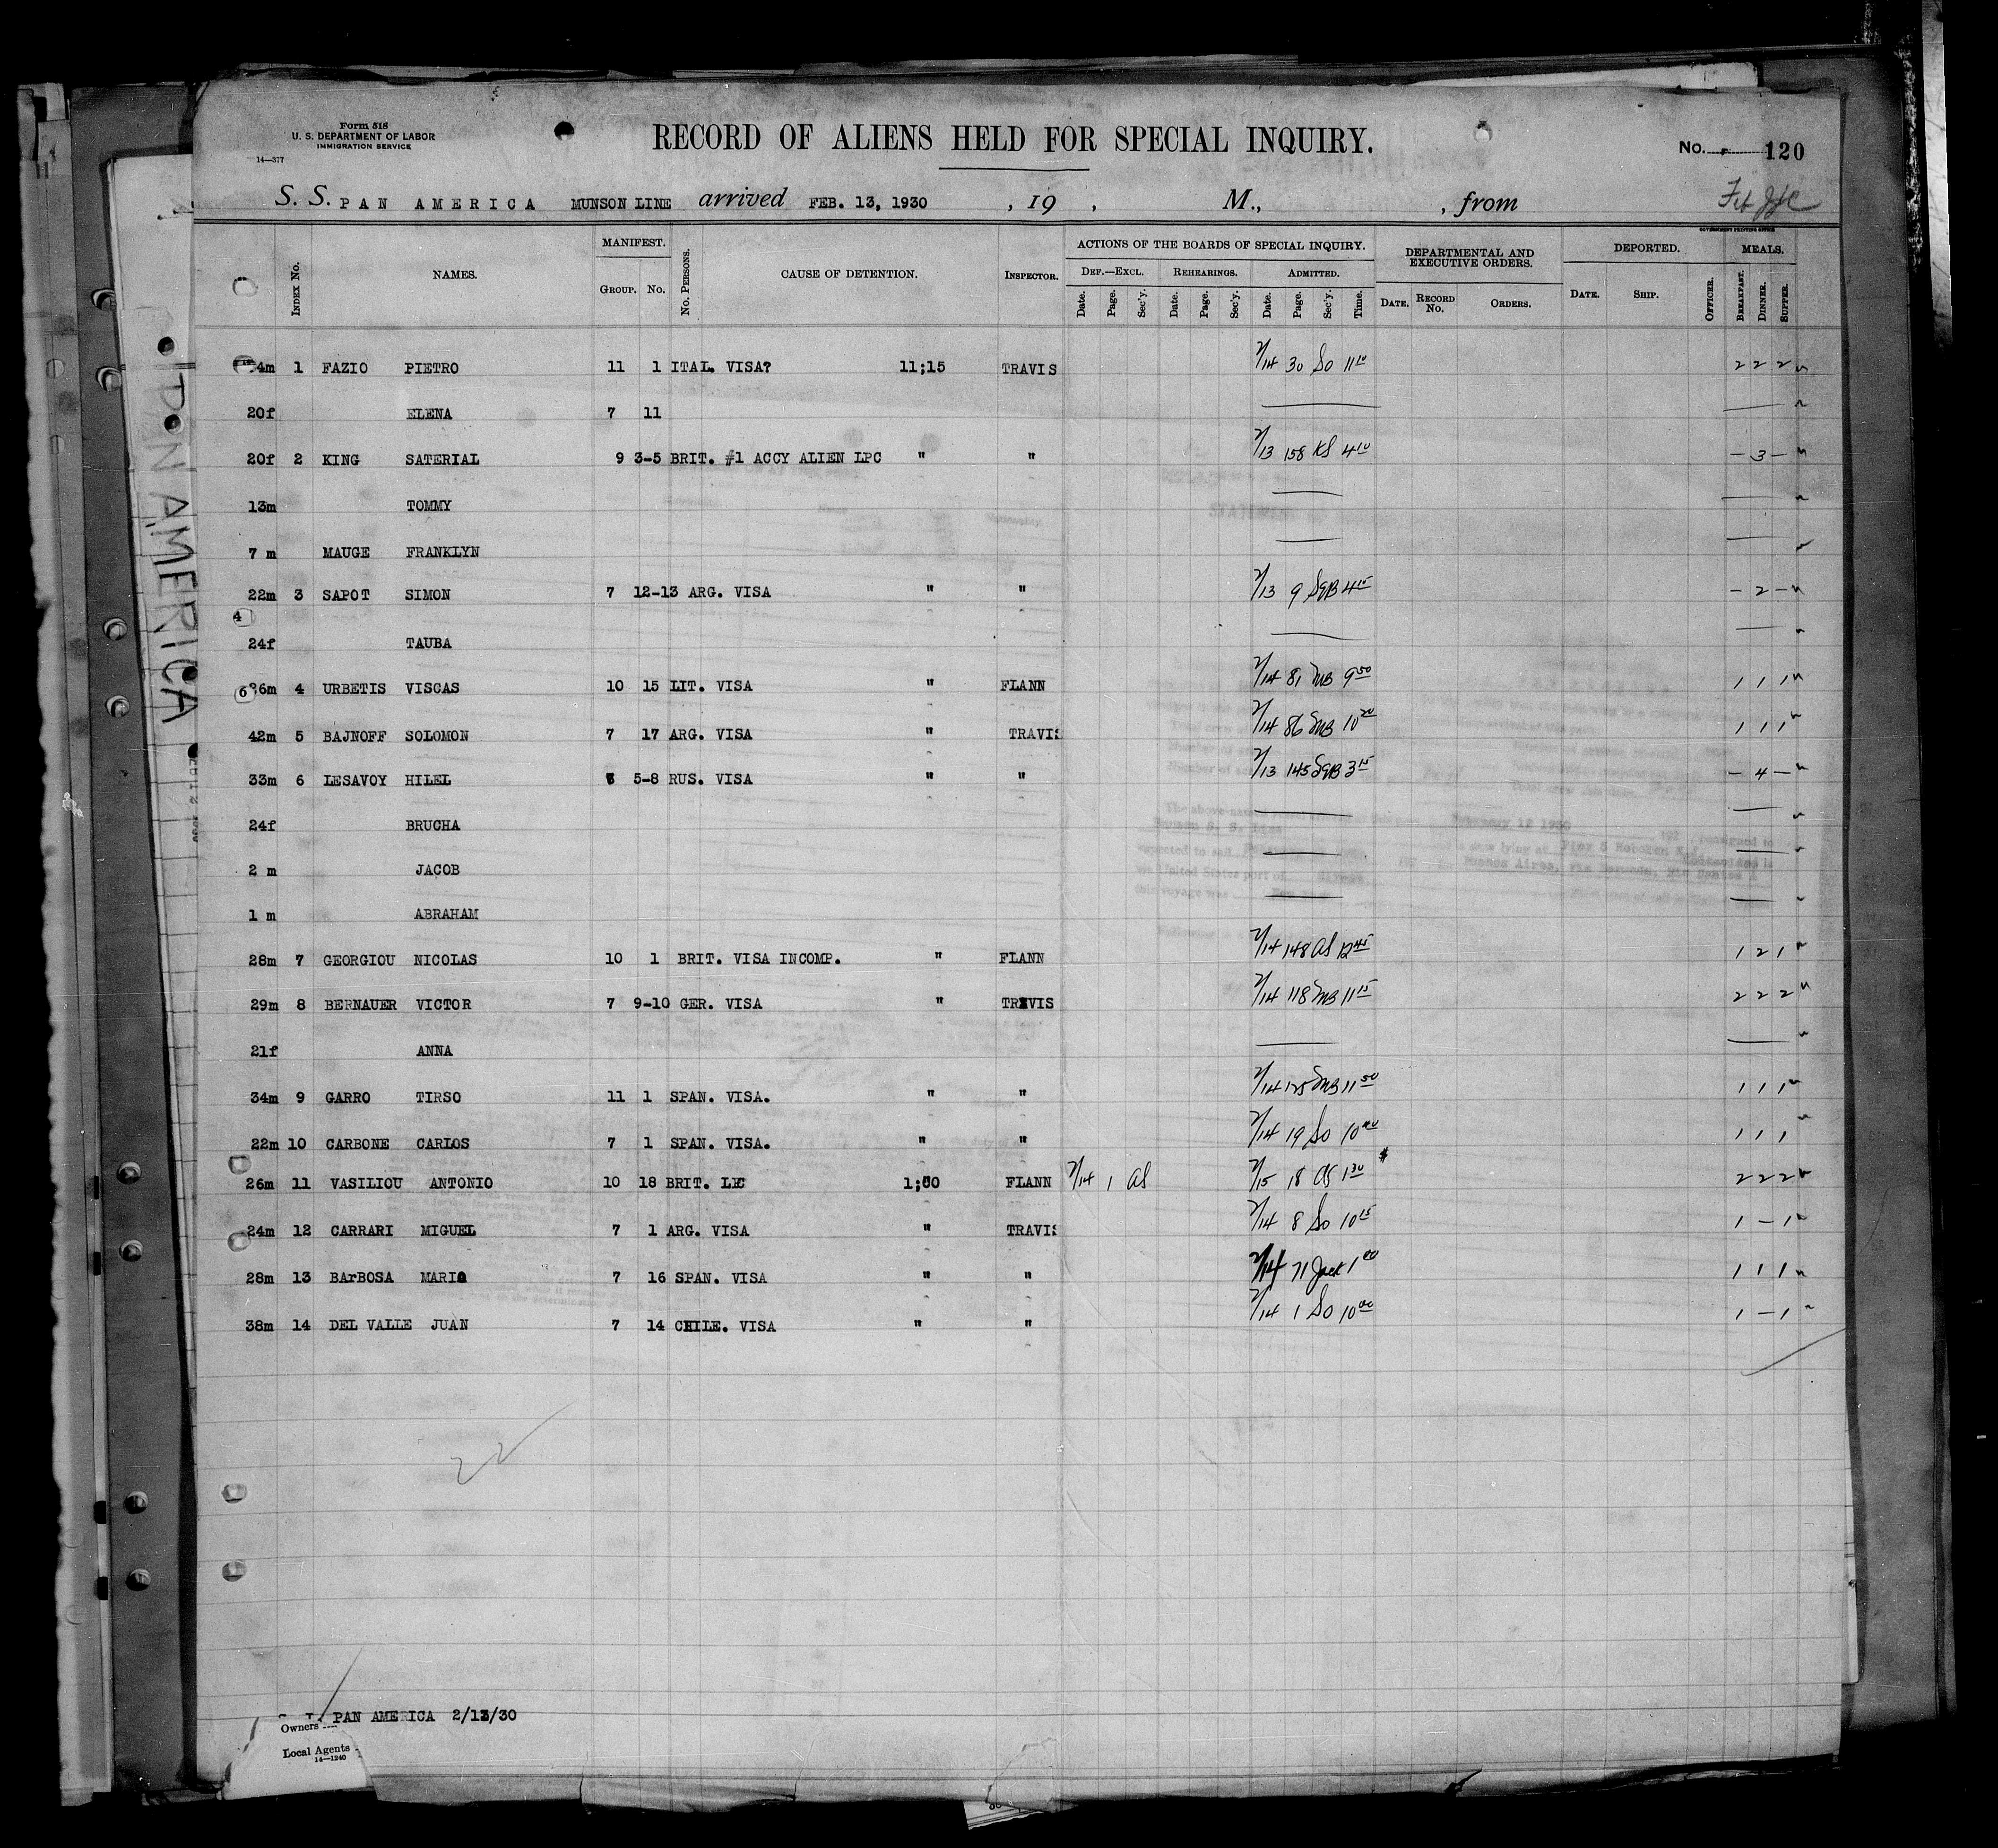 Form 518
U. S. DEPARTMENT OF LABOR
IMMIGRATION SERVICE
14—377
RECORD OF ALIENS HELD FOR SPECIAL INQUIRY.
No. 120
S. S. PAN AMERICA MUNSON LINE arrived FEB. 13, 1930 , 19 , M., , from
GOVERNMENT PRINTING OFFICE
Index No. NAMES. MANIFEST. Group. No. No. Persons. CAUSE OF DETENTION. Inspector. ACTIONS OF THE BOARDS OF SPECIAL INQUIRY. Def.—Excl. Date. Page. Sec'y. Rehearings. Date. Page. Sec'y. Admitted. Date. Page. Sec'y. Time. DEPARTMENTAL AND EXECUTIVE ORDERS. Date. Record No. Orders. DEPORTED. Date. Ship. Officer. MEALS. Breakfast. Dinner. Supper.
4m 1 FAZIO PIETRO 11 1 ITAL. VISA? 11;15 TRAVIS 2/14 30 So 11 10 2 2 2
20f ELENA 7 11
20f 2 KING SATERIAL 9 3-5 BRIT. #1 ACCY ALIEN LPC " " 2/13 158 KS 4 10 – 3 –
13m TOMMY
7 m MAUGE FRANKLYN
22m 3 SAPOT SIMON 7 12-13 ARG. VISA " " 2/13 9 4 15 – 2 –
4
24f TAUBA
6 36m 4 URBETIS VISCAS 10 15 LIT. VISA " FLANN 2/14 81 MB 9 50 1 1 1
42m 5 BAJNOFF SOLOMON 7 17 ARG. VISA " TRAVIS 2/14 86 MB 10 20 1 1 1
33m 6 LESAVOY HILEL 5-8 RUS. VISA " " 2/13 145 3 15 – 4 –
24f BRUCHA
2 m JACOB
1 m ABRAHAM
28m 7 GEORGIOU NICOLAS 10 1 BRIT. VISA INCOMP. " FLANN 2/14 148 AS 12 45 1 2 1
29m 8 BERNAUER VICTOR 7 9-10 GER. VISA " TRAVIS 2/14 118 MB 11 15 2 2 2
21f ANNA
34m 9 GARRO TIRSO 11 1 SPAN. VISA. " " 2/14 125 MB 11 50 1 1 1
22m 10 CARBONE CARLOS 7 1 SPAN. VISA. " " 2/14 19 So 10 1 1 1
26m 11 VASILIOU ANTONIO 10 18 BRIT. LPC 1;00 FLANN 2/14 1 AS 2/15 18 AS 1 30 2 2 2
24m 12 CARRARI MIGUEL 7 1 ARG. VISA " TRAVIS 2/14 8 So 10 15 1 – 1
28m 13 BArBOSA MARIO 7 16 SPAN. VISA " " 2/14 71 1 00 1 1 1
38m 14 DEL VALLE JUAN 7 14 CHILE. VISA " " 2/14 1 So 10 00 1 – 1
22
PAN AMERICA 2/13/30
Owners
Local Agents
14—1240
PAN AMERICA